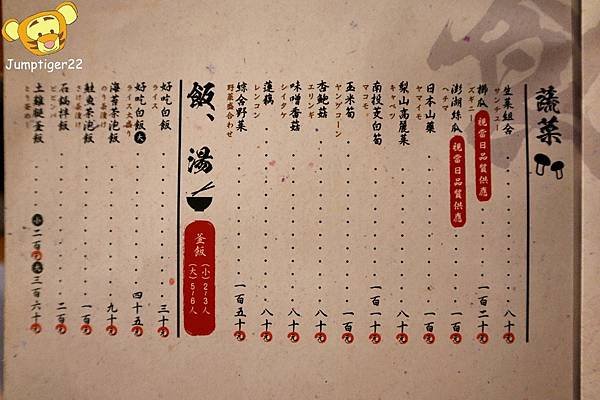 Jumptiger22
蔬菜
生菜組合 八十元
サンチュー
櫛瓜 視當日品質供應 一百二十元
ズギニー
澎湖絲瓜 視當日品質供應 八十元
ヘチマ
日本山藥 一百元
ヤマイモ
梨山高麗菜 八十元
キャベツ
南投茭白筍 一百一十元
マコモ
玉米筍 一百元
ヤングコーン
杏鮑菇 八十元
エリンギ
味噌香菇 八十元
シイタケ
蓮藕 八十元
レンコン
綜合野菜 一百五十元
野菜盛合わせ
飯、湯
釜飯 (小)2/3人 (大)5/6人
好吃白飯 三十元
ライス
好吃白飯 大 四十五元
ライス大盛り
海苔茶泡飯 九十元
のり茶漬け
鮭魚茶泡飯 一百元
さけ茶漬け
石鍋拌飯 二百元
ビビンバ
土雞腿釜飯 小 二百元 大 三百六十元
とり釜めし